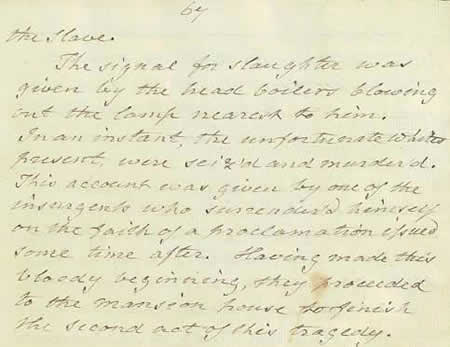 67
the slave.
The signal for slaughter was
given by the head boilers blowing
out the lamp nearest to him.
In an instant, the unfortunate whites
present, were seiz'd and murder'd.
This account was given by one of the
insurgents who surrender'd himself
on the faith of a proclamation issued
some time after. Having made this
bloody beginning, they proceeded
to the mansion house to finish
the second act of this tragedy.